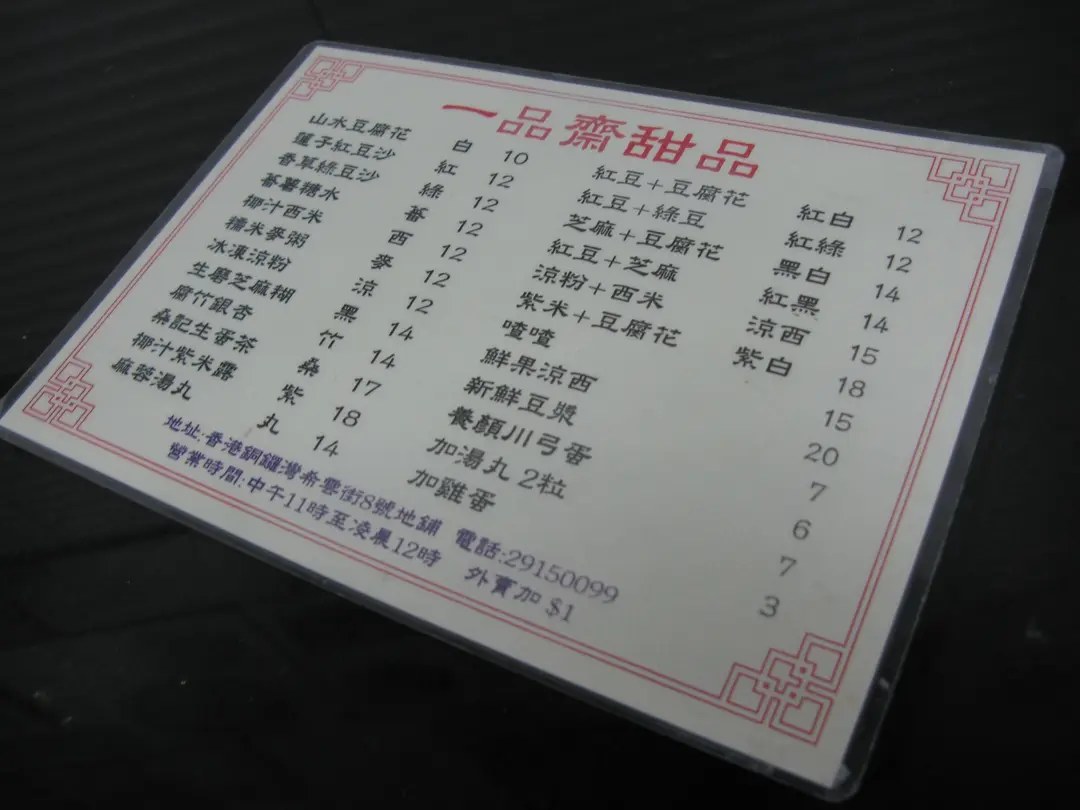 一品齋甜品
山水豆腐花 白 10
蓮子紅豆沙 紅 12
香草綠豆沙 綠 12
蕃薯糖水 蕃 12
椰汁西米 西 12
糯米麥粥 麥 12
冰凍涼粉 涼 12
生磨芝麻糊 黑 14
腐竹銀杏 竹 14
桑記生蛋茶 桑 17
椰汁紫米露 紫 18
麻蓉湯丸 丸 14
紅豆+豆腐花 紅白 12
紅豆+綠豆 紅綠 12
芝麻+豆腐花 黑白 14
紅豆+芝麻 紅黑 14
涼粉+西米 涼西 15
紫米+豆腐花 紫白 18
喳喳 15
鮮果涼西 20
新鮮豆漿 7
養顏川弓蛋 6
加湯丸2粒 7
加雞蛋 3
地址:香港銅鑼灣希雲街8號地鋪 電話:29150099
營業時間:中午11時至凌晨12時 外賣加$1